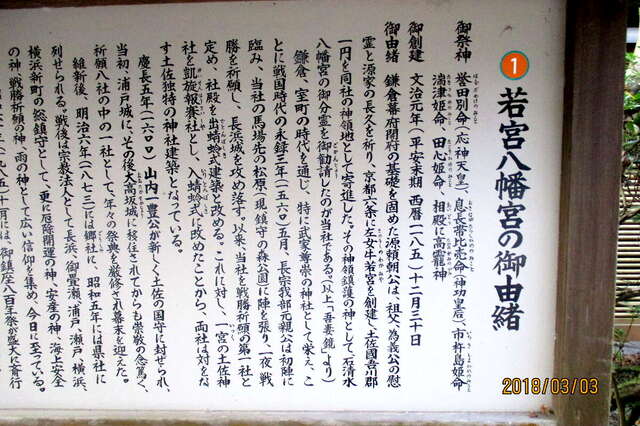 1 若宮八幡宮の御由緒
御祭神 誉田別命(応神天皇)、息長帯比売命(神功皇后)、市杵島姫命
湍津姫命、田心姫命、相殿に高龗神
御創建 文治元年(平安末期 西暦一一八五)十二月三十日
御由緒 鎌倉幕府開府の基礎を固めた源頼朝公は、祖父為義公の慰
霊と源家の長久を祈り、京都六条に左女牛若宮を創建し、土佐國吾川郡
一円を同社の神領地として寄進した。その神領鎮護の神として、石清水
八幡宮の御分霊を御勧請したのが当社である。(以上「吾妻鏡」より)
鎌倉、室町の時代を通じ、特に武家尊崇の神社として栄え、こ
とに戦国時代の永禄三年(一五六〇)五月、長宗我部元親公は初陣に
臨み、当社の馬場先の松原(現鎮守の森公園)に陣を張り、一夜戦
勝を祈願し、長浜城を攻め落す。以来、当社を戦勝祈願の第一社と
定め、社殿を出蜻蛉式建築と改める。これに対し、一宮の土佐神
社を凱旋報賽社とし、入蜻蛉式に改めたことから、両社は対をな
す土佐独特の神社建築となっている。
慶長五年(一六〇〇)山内一豊公が新しく土佐の国守に封ぜられ、
当初、浦戸城に、その後大高坂城に移住されてからも崇敬の念篤く、
祈願八社の中の一社として、年々の祭典を厳修され幕末を迎えた。
維新後、明治六年(一八七三)には郷社に、昭和五年には県社に
列せられる。戦後は宗教法人として長浜、御畳瀬、浦戸、瀬戸、横浜、
横浜新町の総鎮守として、更に厄除開運の神、安産の神、海上安全
の神、戦勝祈願の神、雨の神として広い信仰を集め、今日に至っている。
には、御鎮座八百年祭が盛大に斎行
2018/03/03